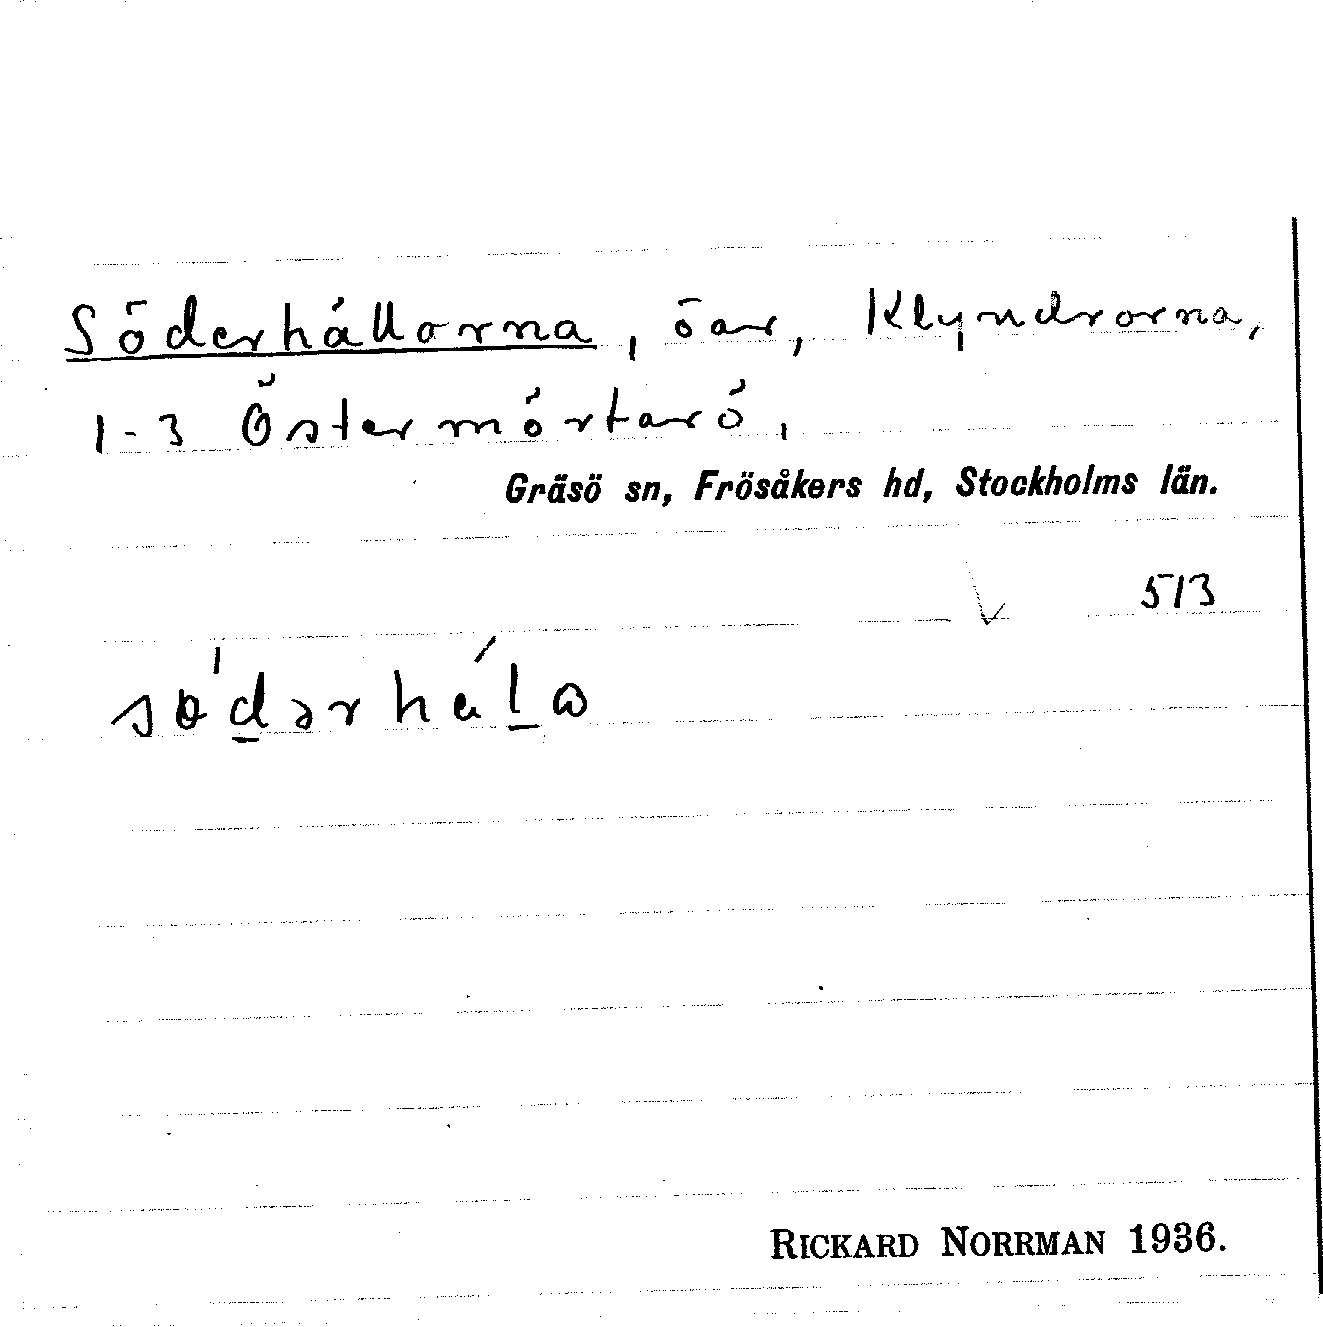 Söderhällorna, öar, Klyndrorna,
1-3 Östermörtarö,
Gräsö sn, Frösåkers hd, Stockholms län.
513
RICKARD NORRMAN 1936.